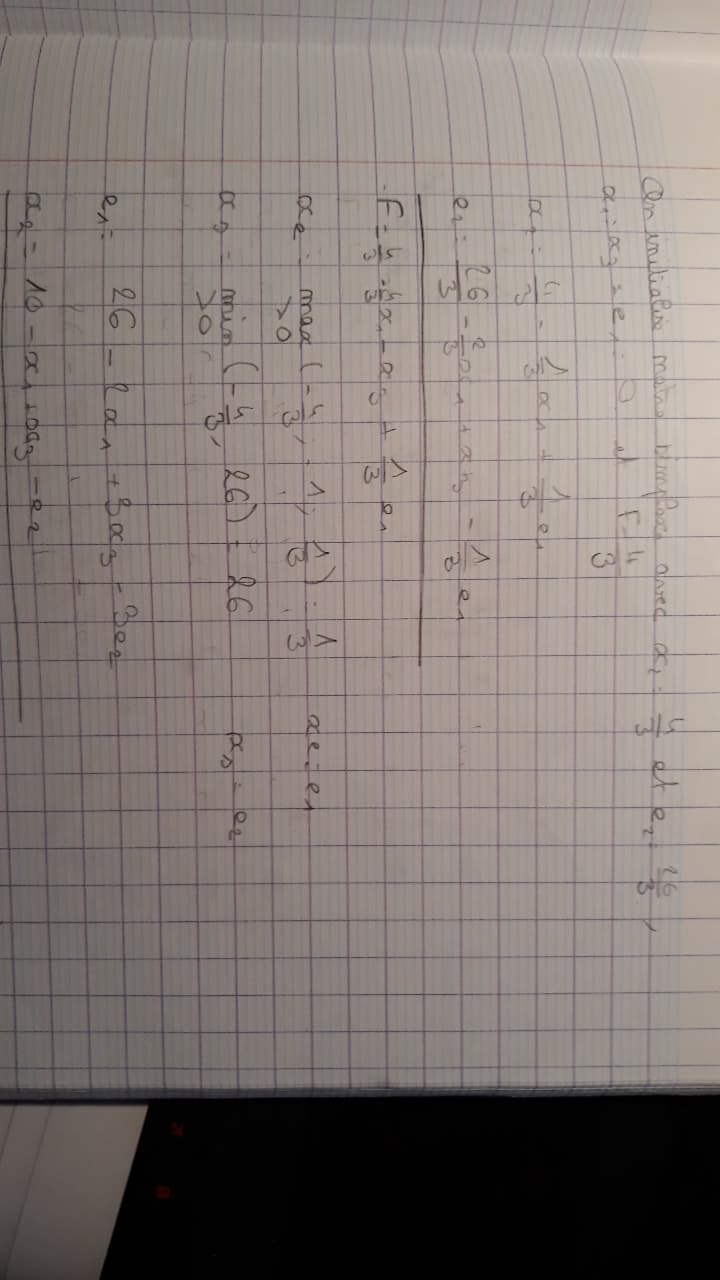 On initialise notre simplexe avec x₂ = 4/3 et e₂ = 26/3,
x₁ = x₃ = e₁ = 0 et F = 4/3
x₂ = 4/3 - 1/3 x₁ + 1/3 e₁
e₂ = 26/3 - 2/3 x₁ + x₃ - 1/3 e₁
F = 4/3 - 4/3 x₁ - x₃ + 1/3 e₁
xe = max >0 (-4/3; -1; 1/3) = 1/3 xe = e₁
xs = min >0 (-4/3, 26) = 26 xs = e₂
e₁ = 26 - 2x₁ + 3x₃ - 3e₂
x₂ = 10 - x₁ + x₃ - e₂